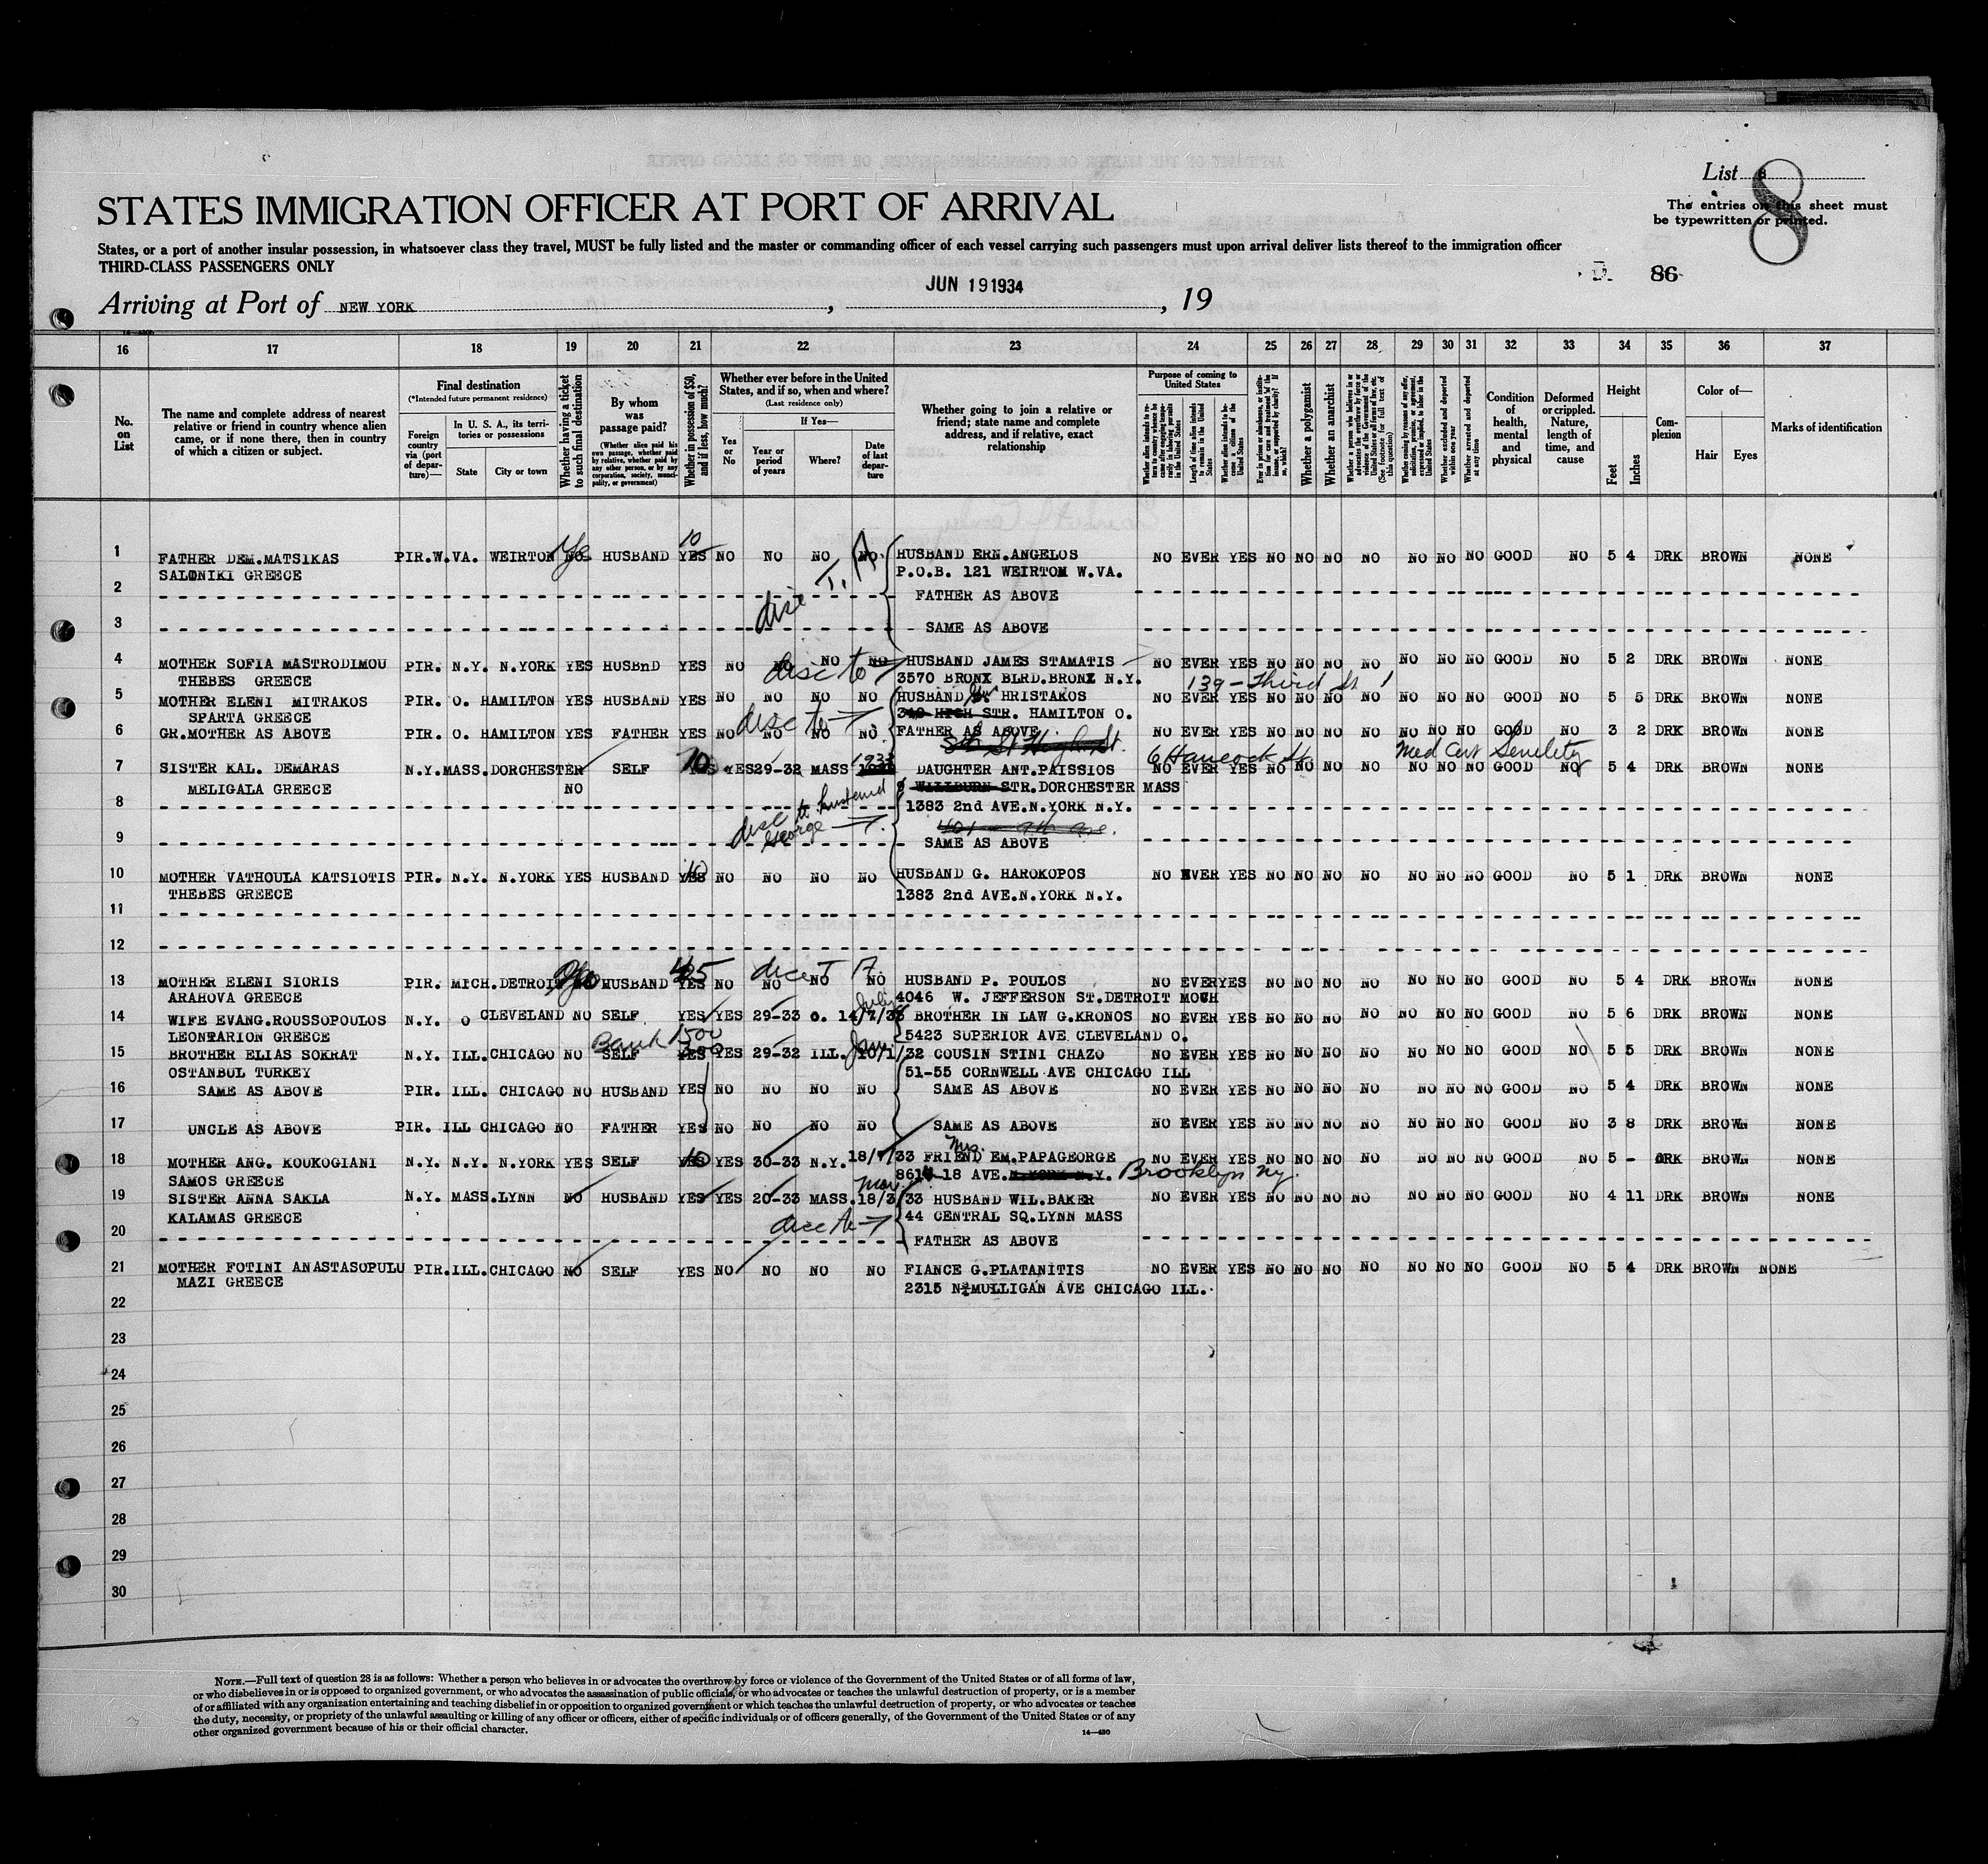 List 8
8
STATES IMMIGRATION OFFICER AT PORT OF ARRIVAL
The entries on this sheet must
be typewritten or printed.
States, or a port of another insular possession, in whatsoever class they travel, MUST be fully listed and the master or commanding officer of each vessel carrying such passengers must upon arrival deliver lists thereof to the immigration officer
THIRD-CLASS PASSENGERS ONLY
86
Arriving at Port of NEW YORK, JUN 19 1934, 19
16 17 18 19 20 21 22 23 24 25 26 27 28 29 30 31 32 33 34 35 36 37
No. on List
The name and complete address of nearest relative or friend in country whence alien came, or if none there, then in country of which a citizen or subject.
Final destination
(*Intended future permanent residence)
Foreign country via (port of departure)—
In U. S. A., its territories or possessions
State
City or town
Whether having a ticket to such final destination
By whom was passage paid?
(Whether alien paid his own passage, whether paid by relative, whether paid by any other person, or by any corporation, society, municipality, or government)
Whether in possession of $50, and if less, how much?
Whether ever before in the United States, and if so, when and where?
(Last residence only)
Yes or No
If Yes—
Year or period of years
Where?
Date of last departure
Whether going to join a relative or friend; state name and complete address, and if relative, exact relationship
Purpose of coming to United States
Length of time alien intends to remain in the United States
Whether alien intends to become a citizen of the United States
Whether a polygamist
Whether an anarchist
Whether excluded and deported within one year
Whether arrested and deported at any time
Condition of health, mental and physical
Deformed or crippled. Nature, length of time, and cause
Height
Feet
Inches
Complexion
Color of—
Hair
Eyes
Marks of identification
1 FATHER DEM.MATSIKAS PIR.W.VA. WEIRTON NO Yes HUSBAND YES 10 NO NO NO NO HUSBAND ERN.ANGELOS NO EVER YES NO NO NO NO NO NO NO GOOD NO 5 4 DRK BROWN NONE
SALONIKI GREECE P.O.B. 121 WEIRTOM W.VA.
2 FATHER AS ABOVE
3 SAME AS ABOVE
4 MOTHER SOFIA MASTRODIMOU PIR. N.Y. N.YORK YES HUSBnD YES NO NO NO NO HUSBAND JAMES STAMATIS NO EVER YES NO NO NO NO NO NO NO GOOD NO 5 2 DRK BROWN NONE
THEBES GREECE disc to 3570 BRONX BLRD.BRONX N.Y.
139 - Third St
5 MOTHER ELENI MITRAKOS PIR. O. HAMILTON YES HUSBAND YES NO NO NO NO HUSBAND HRISTAKOS NO EVER YES NO NO NO NO NO NO NO GOOD NO 5 5 DRK BROWN NONE
SPARTA GREECE disc to HIGH STR. HAMILTON O.
6 GR.MOTHER AS ABOVE PIR. O. HAMILTON YES FATHER YES NO NO NO NO FATHER AS ABOVE NO EVER YES NO NO NO NO NO NO NO GOOD NO 3 2 DRK BROWN NONE
6 Hancock St Med Cert Senility
7 SISTER KAL. DEMARAS N.Y.MASS.DORCHESTER SELF 70 YES YES 29-32 MASS 1933 DAUGHTER ANT.PAISSIOS NO EVER YES NO NO NO NO NO NO NO GOOD NO 5 4 DRK BROWN NONE
MELIGALA GREECE NO WILLBURN STR.DORCHESTER MASS
8 1383 2nd AVE.N.YORK N.Y.
disc to husband George
401 - 9th Ave.
9 SAME AS ABOVE
10 MOTHER VATHOULA KATSIOTIS PIR. N.Y. N.YORK YES HUSBAND YES 10 NO NO NO NO HUSBAND G. HAROKOPOS NO EVER YES NO NO NO NO NO NO NO GOOD NO 5 1 DRK BROWN NONE
THEBES GREECE 1383 2nd AVE.N.YORK N.Y.
11
12
13 MOTHER ELENI SIORIS PIR. MICH.DETROIT HUSBAND YES NO NO NO NO HUSBAND P. POULOS NO EVERYES NO NO NO NO NO NO NO GOOD NO 5 4 DRK BROWN NONE
ARAHOVA GREECE 4046 W. JEFFERSON ST.DETROIT MOCH
14 WIFE EVANG.ROUSSOPOULOS N.Y. O CLEVELAND NO SELF YES YES 29-33 O. 14/7/33 July BROTHER IN LAW G.KRONOS NO EVER YES NO NO NO NO NO NO NO GOOD NO 5 6 DRK BROWN NONE
LEONTARION GREECE Bank 1500 5423 SUPERIOR AVE CLEVELAND O.
15 BROTHER ELIAS SOKRAT N.Y. ILL.CHICAGO NO SELF YES YES 29-32 ILL. 10/1/32 Jan COUSIN STINI CHAZO NO EVER YES NO NO NO NO NO NO NO GOOD NO 5 5 DRK BROWN NONE
OSTANBUL TURKEY 51-55 CORNWELL AVE CHICAGO ILL
16 SAME AS ABOVE PIR. ILL. CHICAGO NO HUSBAND YES NO NO NO NO SAME AS ABOVE NO EVER YES NO NO NO NO NO NO NO GOOD NO 5 4 DRK BROWN NONE
17 UNCLE AS ABOVE PIR. ILL CHICAGO NO FATHER YES NO NO NO NO SAME AS ABOVE NO EVER YES NO NO NO NO NO NO NO GOOD NO 3 8 DRK BROWN NONE
18 MOTHER ANG. KOUKOGIANI N.Y. N.Y. N.YORK YES SELF YES 10 YES 30-33 N.Y. 18/7/33 FRIEND Mrs. EM.PAPAGEORGE NO EVER YES NO NO NO NO NO NO NO GOOD NO 5 - DRK BROWN NONE
SAMOS GREECE 8614-18 AVE.N.YORK N.Y. Brooklyn Ny.
19 SISTER ANNA SAKLA N.Y. MASS.LYNN NO HUSBAND YES YES 20-33 MASS. 18/3/33 HUSBAND WIL.BAKER NO EVER YES NO NO NO NO NO NO NO GOOD NO 4 11 DRK BROWN NONE
KALAMAS GREECE disc to 44 CENTRAL SQ.LYNN MASS
20 FATHER AS ABOVE
21 MOTHER FOTINI ANASTASOPULU PIR.ILL.CHICAGO NO SELF YES NO NO NO NO FIANCE G.PLATANITIS NO EVER YES NO NO NO NO NO NO NO GOOD NO 5 4 DRK BROWN NONE
MAZI GREECE 2315 N MULLIGAN AVE CHICAGO ILL.
22
23
24
25
26
27
28
29
30
NOTE.—Full text of question 28 is as follows: Whether a person who believes in or advocates the overthrow by force or violence of the Government of the United States or of all forms of law,
or who disbelieves in or is opposed to organized government, or who advocates the assassination of public officials, or who advocates or teaches the unlawful destruction of property, or is a member
of or affiliated with any organization entertaining and teaching disbelief in or opposition to organized government or which teaches the unlawful destruction of property, or who advocates or teaches
the duty, necessity, or propriety of the unlawful assaulting or killing of any officer or officers, either of specific individuals or of officers generally, of the Government of the United States or of any
other organized government because of his or their official character.
14—480